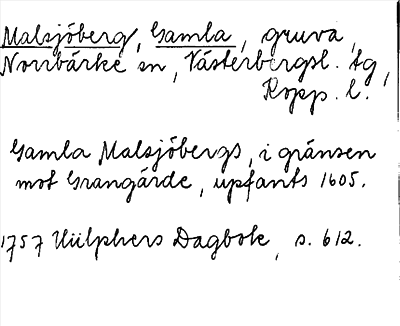 Malsjöberg, Gamla, gruva,
Norrbärke sn, Västerbergsl. tg,
Kopp. l.
Gamla Malsjöbergs, i gränsen
mot Grangärde, upfants 1605.
1757 Hülphers Dagbok, s. 612.